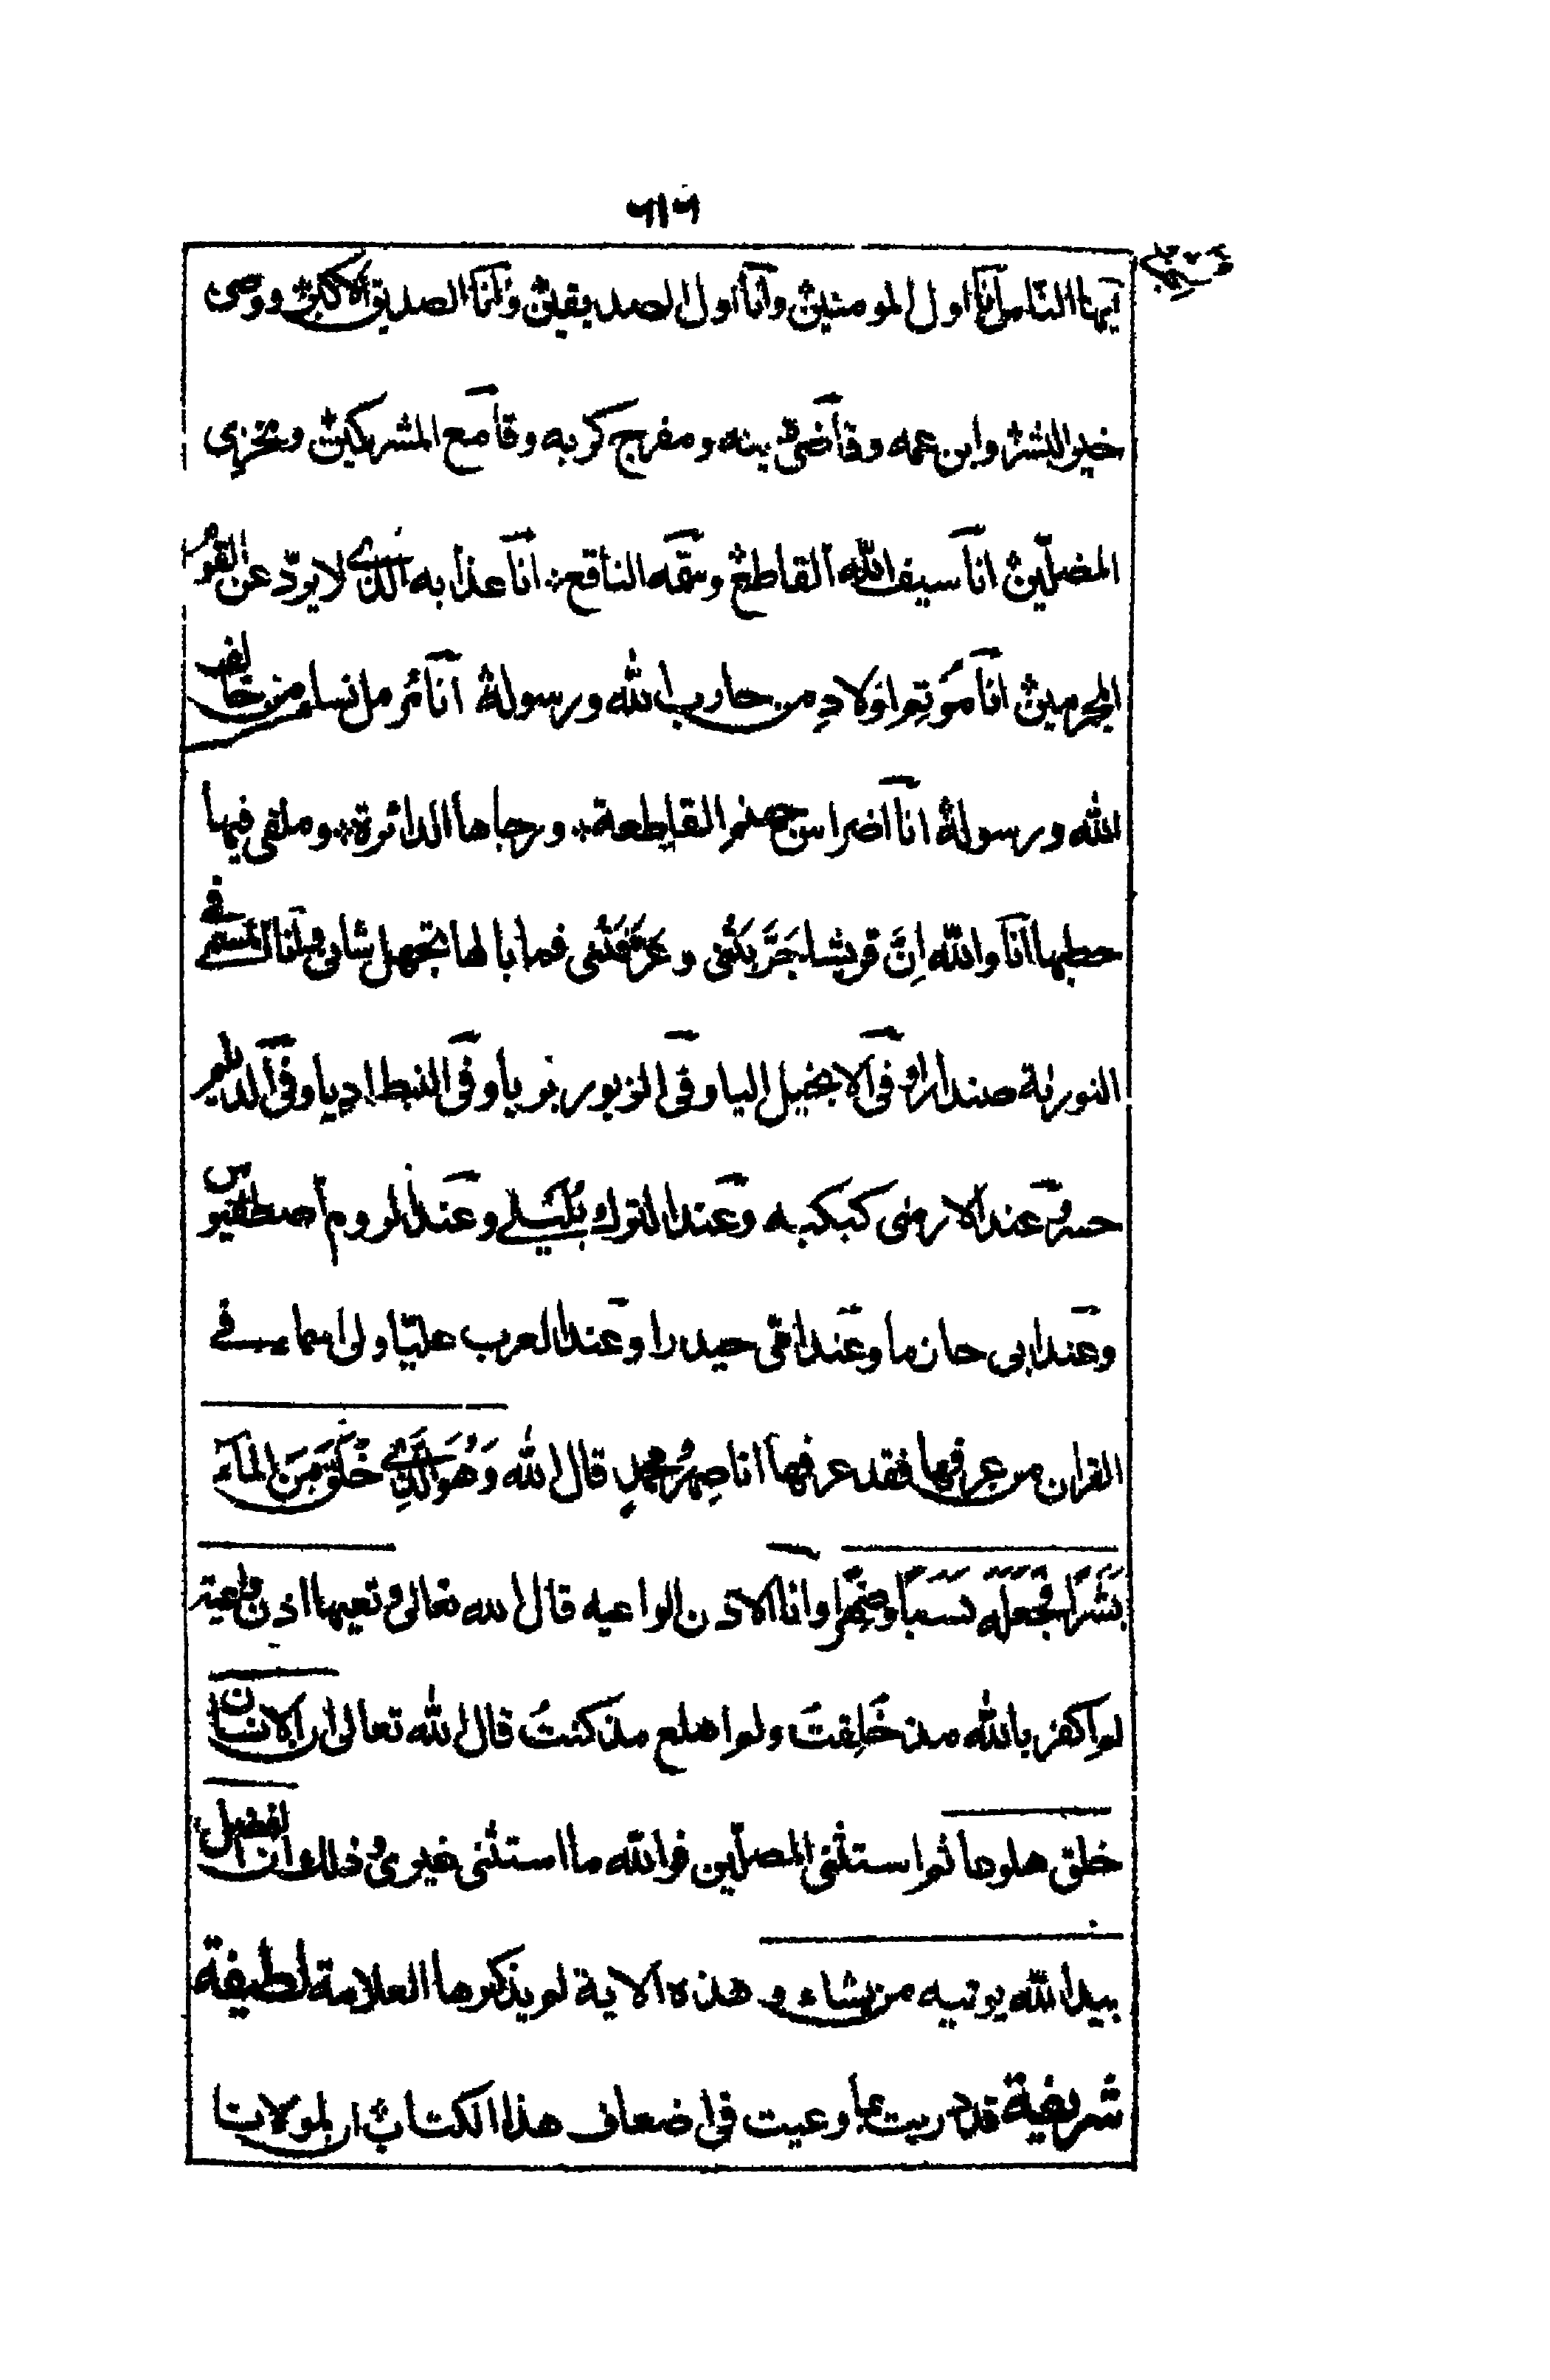 ٦١٦
ايها الناس انا اول المومنين وانا اول الصديقين وانا الصديق الاكبر ووصى
خير البشر وابن عمه وقاضى دينه ومفرج كربه وقامع المشركين ومخزى
المضلّين انا سيف الله القاطع وسمّه الناقع انا عذابه الذى لا يردّ عن القوم
المجرمين انا موتم اولادِ من حارب الله ورسوله انا مرمل نساء من خالف
الله ورسوله انا اضراس جهنم القاطعة ورحاها الدائرة وملقى فيها
حطبها انا والله اِنَّ قريشا جَرَّبَتْنى وعَرَفَتْنى فما بالها تجهل شانى وانا المسمى فى
التورىة صندارا وفى الانجيل اليا وفى الزبور بريا وفى النبط اديا وفى الديلم
وعند الارمنى كبكبه وعند الترك وعند الروم
وعند ابى حان ما وعند امّى حيدرا وعند العرب عليّا ولى اسماء فى
القران من عرفها فقد عرفها انا صِهرُ محمدٍ قال الله وَهُوَ الَّذِى خَلَقَ مِنَ المَآءِ
بَشَرًا فَجَعَلَه نَسَبًا وصِهْرًا وانا الاذن الواعيه قال الله تعالى وتعيها اذن واعية
لم اكفر بالله منذ خُلِقتُ ولم اهلع منذ كنتُ قال الله تعالى ان الانسان
خلق هلوعا ثم استثنى المصلّين فوالله ما استثنى غيرى وذلك ان الفضل
بيد الله يوتيه من يشاء و هذه الاية لم يذكرها العلامة لطيفة
شريفة قد دريت بما وعيت فى اضعاف هذا الكتاب ان لمولانا